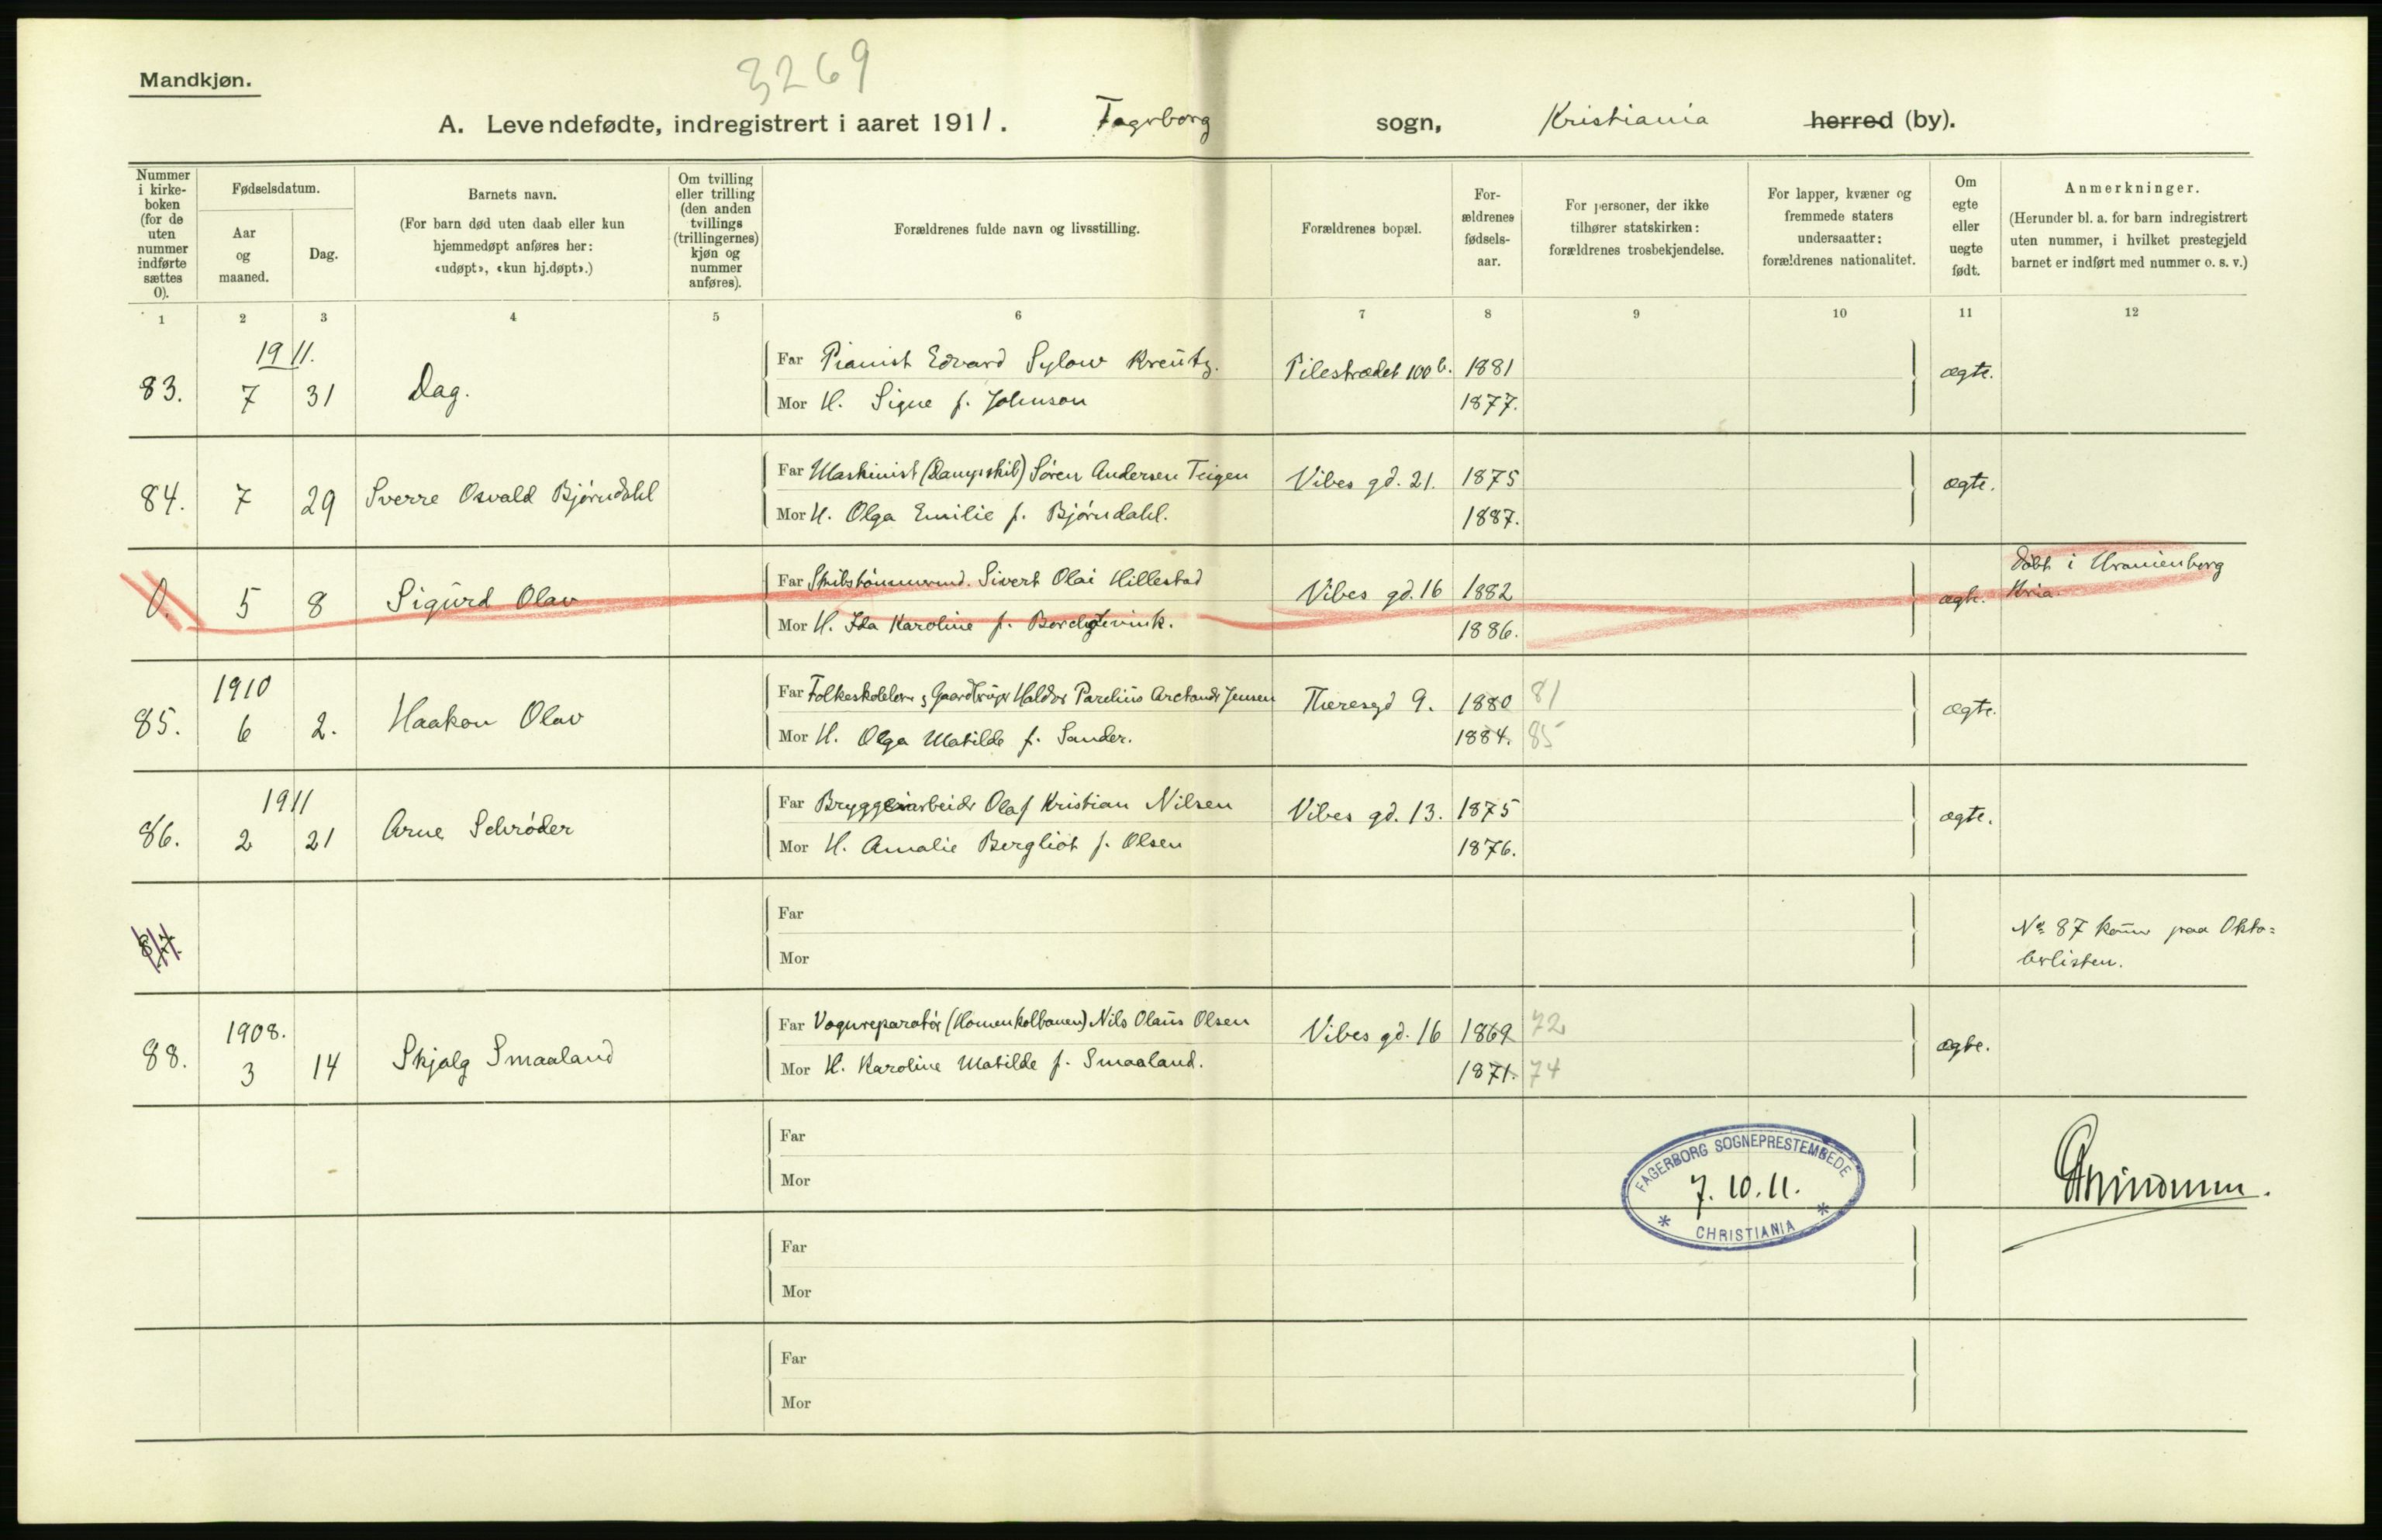 3269
Mandkjøn.
A. Levendefødte, indregistrert i aaret 1911. Fagerborg sogn, Kristiania herred (by).
Nummer i kirke-boken (for de uten nummer indførte sættes 0).
Fødselsdatum.
Aar og maaned.
Dag.
Barnets navn.
(For barn død uten daab eller kun hjemmedøpt anføres her: «udøpt», «kun hj.døpt».)
Om tvilling eller trilling (den anden tvillings (trillingernes) kjøn og nummer anføres).
Forældrenes fulde navn og livsstilling.
Forældrenes bopæl.
For-ældrenes fødsels-aar.
For personer, der ikke tilhører statskirken: forældrenes trosbekjendelse.
For lapper, kvæner og fremmede staters undersaatter: forældrenes nationalitet.
Om egte eller uegte født.
Anmerkninger.
(Herunder bl. a. for barn indregistrert uten nummer, i hvilket prestegjeld barnet er indført med nummer o. s. v.)
1 2 3 4 5 6 7 8 9 10 11 12
1911.
83. 7 31 Dag. Far Pianist Edvard Sylow Kreutz. Pilestrædet 100 b. 1881 ægte.
Mor H. Signe f. Johnson 1877.
84. 7 29 Sverre Osvald Bjørndahl Far Maskinist (Dampskib) Søren Andersen Teigen Vibes gd. 21. 1875 ægte.
Mor H. Olga Emilie f. Bjørndahl. 1887.
0. 5 8 Sigurd Olav Far Skibstømmermd. Sivert Olai Hillestad Vibes gd. 16 1882 ægte. Døbt i Uranienborg
Mor H. Ida Karoline f. 1886. Kria.
1910
85. 6 2. Haakon Olav Far Folkeskolelærer, Haldor Parelius Arctander Jensen Theresegd 9. 1880 81 ægte.
Mor H. Olga Matilde f. Sander. 1884. 85
1911
86. 2 21 Arne Schrøder Far Bryggeriarbeider Olaf Kristian Nilsen Vibes gd. 13. 1875 ægte.
Mor H. Amalie Bergliot f. Olsen 1876.
87. Far No 87 kom̄er paa Okto=
Mor berlisten.
1908.
88. 3 14 Skjalg Smaaland Far Vognreparatør (Holmenkolbanen) Nils Olaus Olsen Vibes gd. 16 1869 72 ægte.
Mor H. Karoline Matilde f. Smaaland. 1871. 74
Far
Mor
FAGERBORG SOGNEPRESTEMBEDE
7.10.11.
* CHRISTIANIA *
Far
Mor
Far
Mor